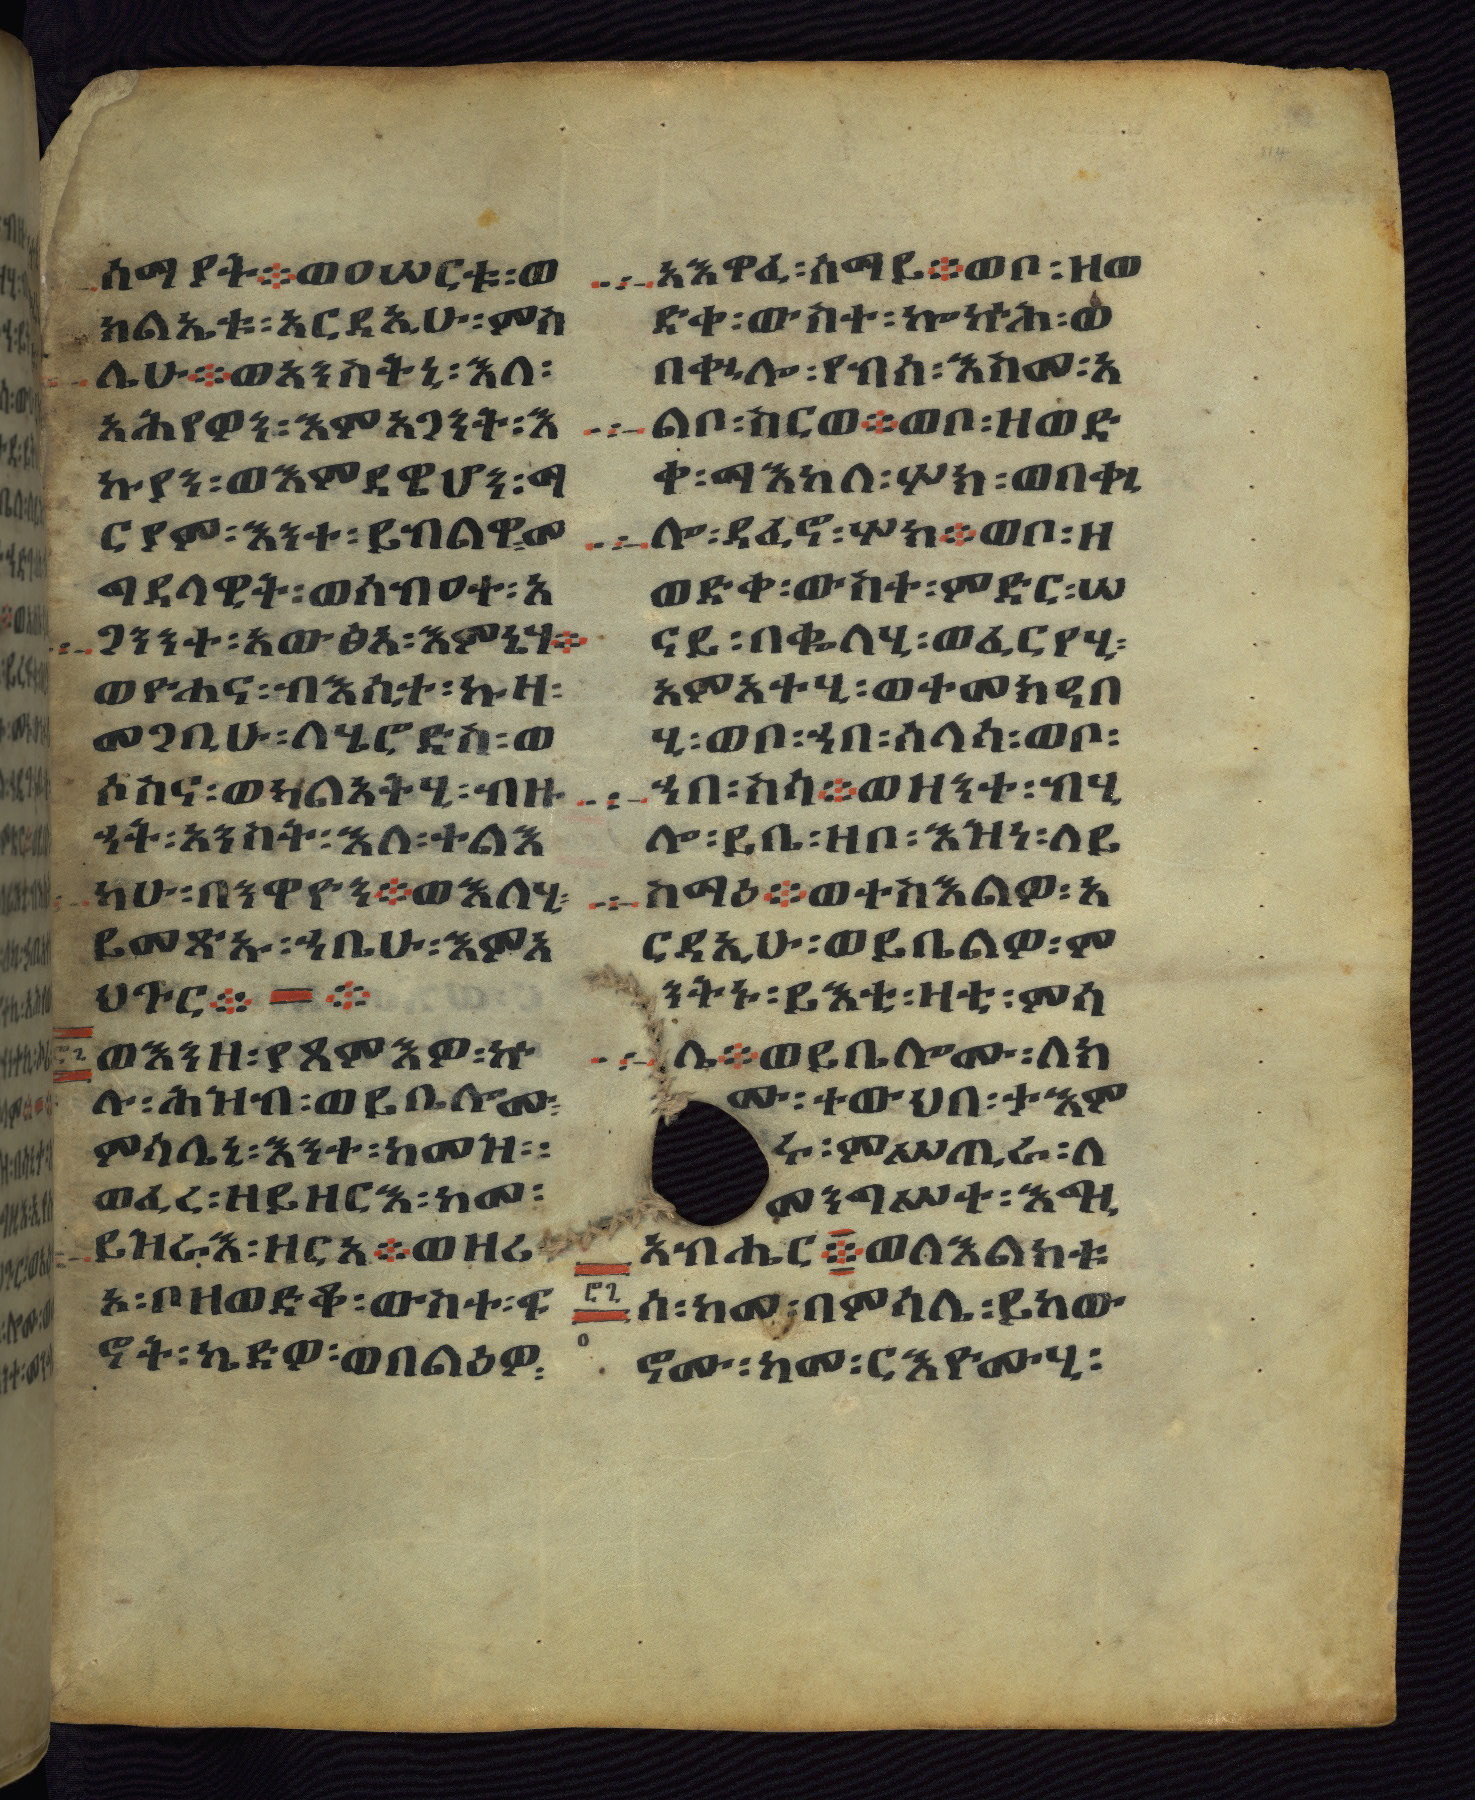 ሰማያት፨ወዐሠርቱ፡ወ
ክልኤቱ፡አርዳኢሁ፡ምስ
ሌሁ፨ወአንስትኒ፡እለ፡
አሕየዎን፡እምአጋንት፡እ
ኩያን፡ወእምደዌሆን፡ማ
ርያም፡እንተ፡ይብልዋ፡መ
ግደላዊት፡ወሰብዐተ፡አ
ጋንንተ፡አውፅአ፡እምኔሃ፨
ወዮሐና፡ብእሲተ፡ኩዛ፡
መጋቢሁ፡ለሄሮድስ፡ወ
ሶስና፡ወካልኣትሂ፡ብዙ
ኃት፡አንስት፡እለ፡ተልእ
ካሁ፡በንዋዮን፨ወእለሂ፡
ይመጽኡ፡ኀቤሁ፡እምአ
ህጉር፨ ፨
ወእንዘ፡የጸምእዎ፡ኵ
ሉ፡ሕዝብ፡ወይቤሎሙ፡
ምሳሌኒ፡እንተ፡ከመዝ፡፡
ወፈረ፡ዘይዘርእ፡ከመ፡
ይዝራእ፡ዘርአ፨ወዘሪ
አ፡ቦዘወድቀ፡ውስተ፡ፍ
ኖት፡ኬድዎ፡ወበልዕዎ፡
አእዋፈ፡ሰማይ፨ወቦ፡ዘወ
ድቀ፡ውስተ፡ኰኵሕ፡ወ
በቍሎ፡የብሰ፡እስመ፡አ
ልቦ፡ሥርወ፨ወቦ፡ዘወድ
ቀ፡ማእከለ፡ሦክ፡ወበቍ
ሎ፡ደፈኖ፡ሦክ፨ወቦ፡ዘ
ወድቀ፡ውስተ፡ምድር፡ሠ
ናይ፡በቈለሂ፡ወፈርየሂ፡
አምአተሂ፡ወተመክዐበ
ሂ፡ወቦ፡ኀበ፡ሰላሳ፡ወቦ፡
ኀበ፡ስሳ፨ወዘንተ፡ብሂ
ሎ፡ይቤ፡ዘቦ፡እዝነ፡ለይ
ስማዕ፨ወተስእልዎ፡አ
ርዳኢሁ፡ወይቤልዎ፡ም
ንትኑ፡ይእቲ፡ዛቲ፡ምሳ
ሌ፨ወይቤሎሙ፡ለክ
ሙ፡ተውህበ፡ታእም
ሩ፡ምሥጢራ፡ለ
መንግሥተ፡እግዚ
አብሔር፨ወለእልክቱ
ሰ፡ከመ፡በምሳሌ፡ይከው
ኖሙ፡ከመ፡ርእዮሙሂ፡